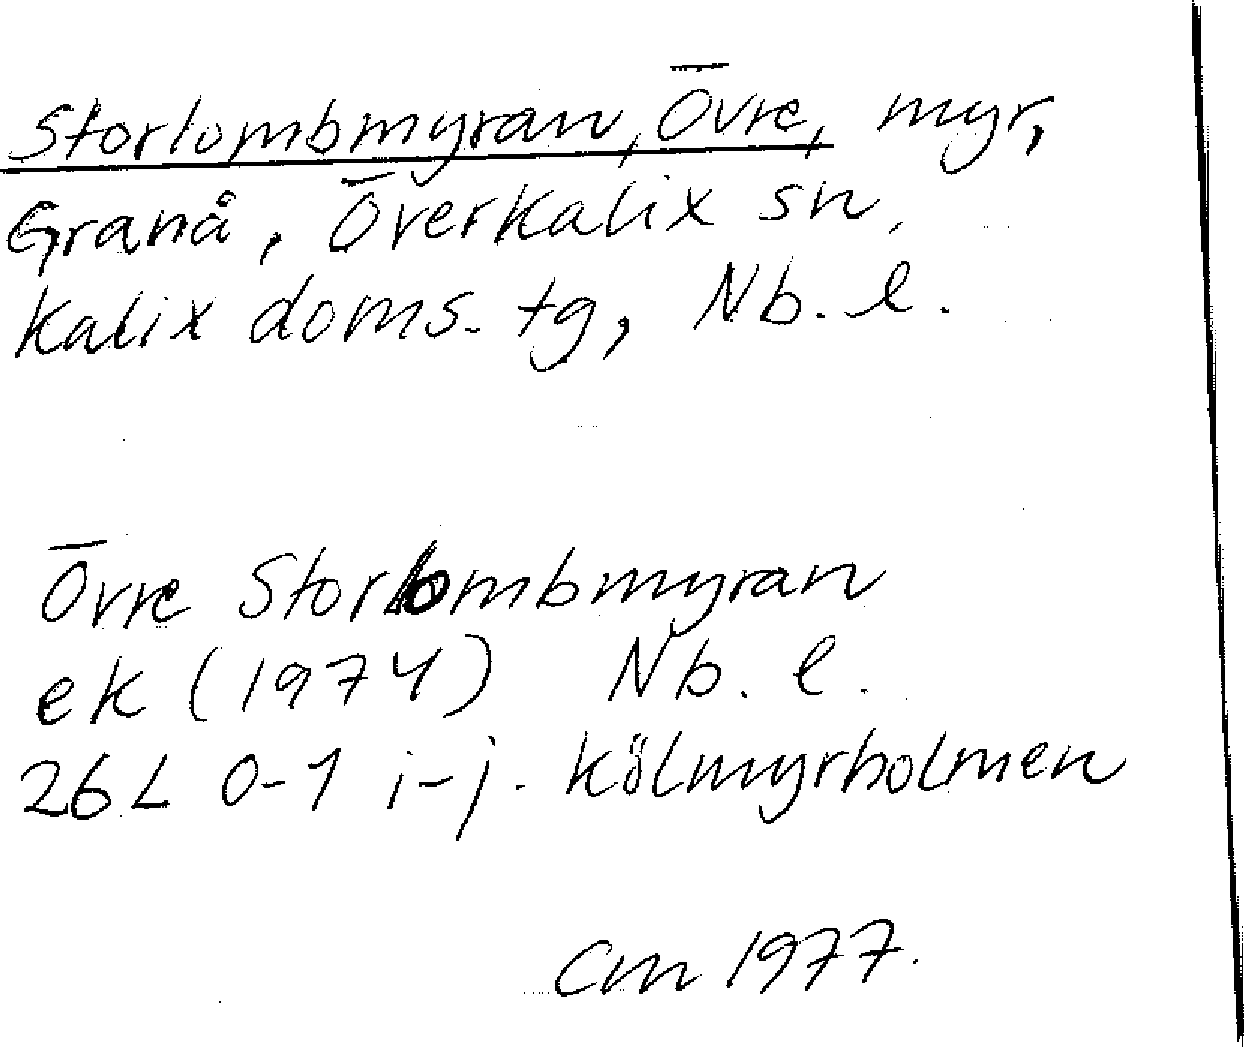 Storlombmyran, Övre, myr,
Granå, Överkalix sn,
Kalix doms. tg, Nb. l.
Övre Storlombmyran
ek (1974) Nb. l.
26L 0-1 i-j. Kölmyrholmen
CM 1977.